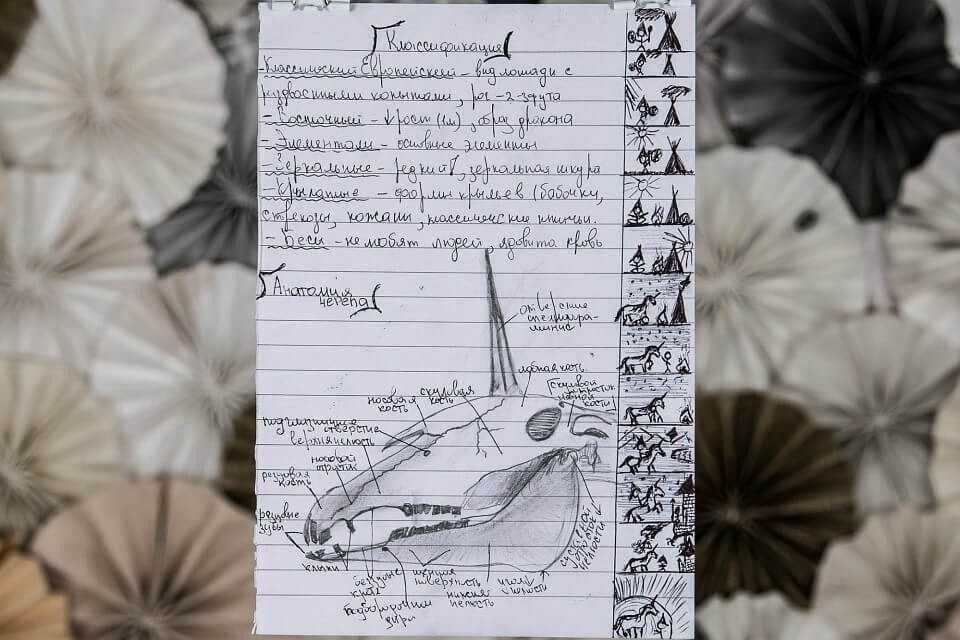 Классификация
-Классический Европейский - вид лошади с
раздвоенными копытами, рог -2-3 фута
-Восточный - ↓ рост (1м), образ дракона
-Элементали - основные элементы
-Зеркальные - редкий, зеркальная шкура
-Крылатые - форми крыльев (бабочки,
стрекозы, кожани, классические птичьи.
-Беси - не любят людей, ядовита кровь
Анатомия
черепа
отверстие
лобная кость
скуловая
кость
носовая
кость
скуловой
отросток
кости
подглазничное
отверстие
верхня челюсть
носовой
отросток
резцовая
кость
резцовые
зубы
клыки
беззубые
края
подбородочные
дыри
щечная
поверхность
нижняя
челюсть
угол
челюсти
суставной
отросток
челюсти